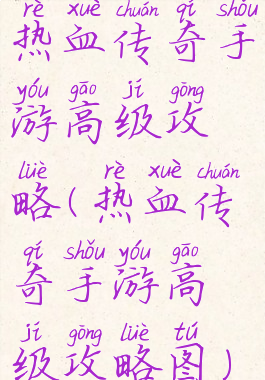 rè xuè chuán qí shǒu
热血传奇手
yóu gāo jí gōng
游高级攻
lüè rè xuè chuán
略(热血传
qí shǒu yóu gāo
奇手游高
jí gōng lüè tú
级攻略图)